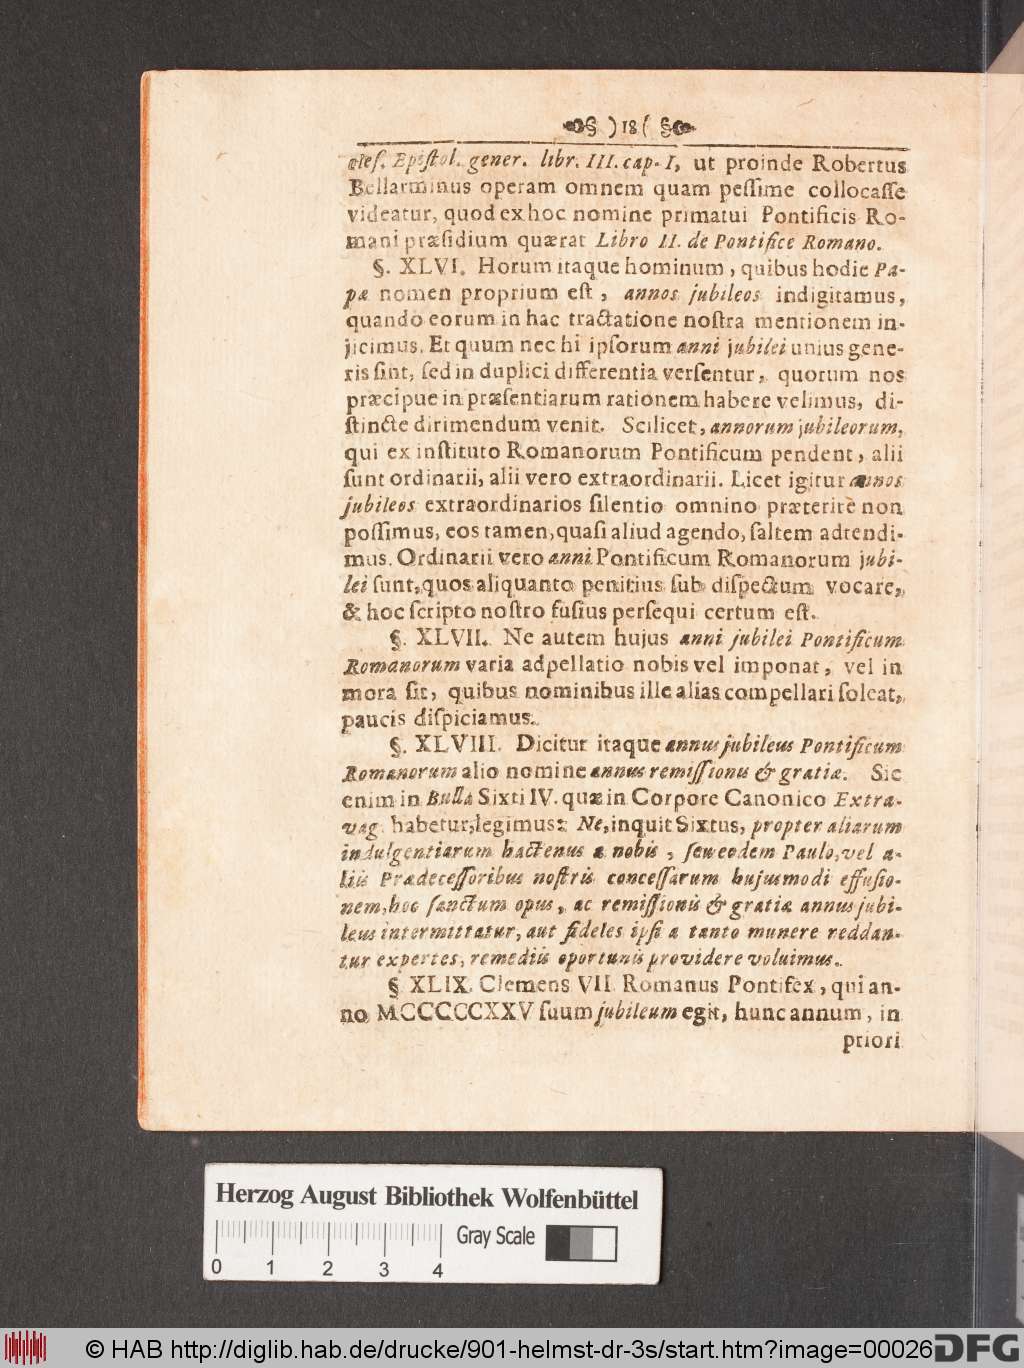 § )18( §
ꝛles. Epistol. gener. libr. III. cap. I, ut proinde Robertus
Bellarminus operam omnem quam pessime collocasse
videatur, quod ex hoc nomine primatui Pontificis Ro-
mani præsidium quærat Libro II. de Pontifice Romano.
§. XLVI. Horum itaque hominum, quibus hodie Pa-
pæ nomen proprium est, annos jubileos indigitamus,
quando eorum in hac tractatione nostra mentionem in-
jicimus. Et quum nec hi ipsorum anni jubilei unius gene-
ris sint, sed in duplici differentia versentur, quorum nos
præcipue in præsentiarum rationem habere velimus, di-
stincte dirimendum venit. Scilicet, annorum jubileorum,
qui ex instituto Romanorum Pontificum pendent, alii
sunt ordinarii, alii vero extraordinarii. Licet igitur annos
jubileos extraordinarios silentio omnino præterire non
possimus, eos tamen, quasi aliud agendo, saltem adtendi-
mus. Ordinarii vero anni Pontificum Romanorum jubi-
lei sunt, quos aliquanto penitius sub dispectum vocare,
& hoc scripto nostro fusius persequi certum est.
§. XLVII. Ne autem hujus anni jubilei Pontificum
Romanorum varia adpellatio nobis vel imponat, vel in
mora sit, quibus nominibus ille alias compellari soleat,
paucis dispiciamus.
§. XLVIII. Dicitur itaque annus jubileus Pontificum
Romanorum alio nomine annus remissionis & gratiæ. Sic
enim in Bulla Sixti IV. quæ in Corpore Canonico Extra-
vag. habetur, legimus: Ne, inquit Sixtus, propter aliarum
indulgentiarum hactenus a nobis, seu eodem Paulo, vel a-
liis Prædecessoribus nostris concessarum hujusmodi effusio-
nem, hoc sanctum opus, ac remissionis & gratiæ annus jubi-
leus intermittatur, aut fideles ipsi a tanto munere reddan-
tur expertes, remediis oportunis providere voluimus.
§. XLIX. Clemens VII. Romanus Pontifex, qui an-
no MCCCCCXXV suum jubileum egit, hunc annum, in
priori
Herzog August Bibliothek Wolfenbüttel
Gray Scale
0 1 2 3 4
© HAB http://diglib.hab.de/drucke/901-helmst-dr-3s/start.htm?image=00026
DFG